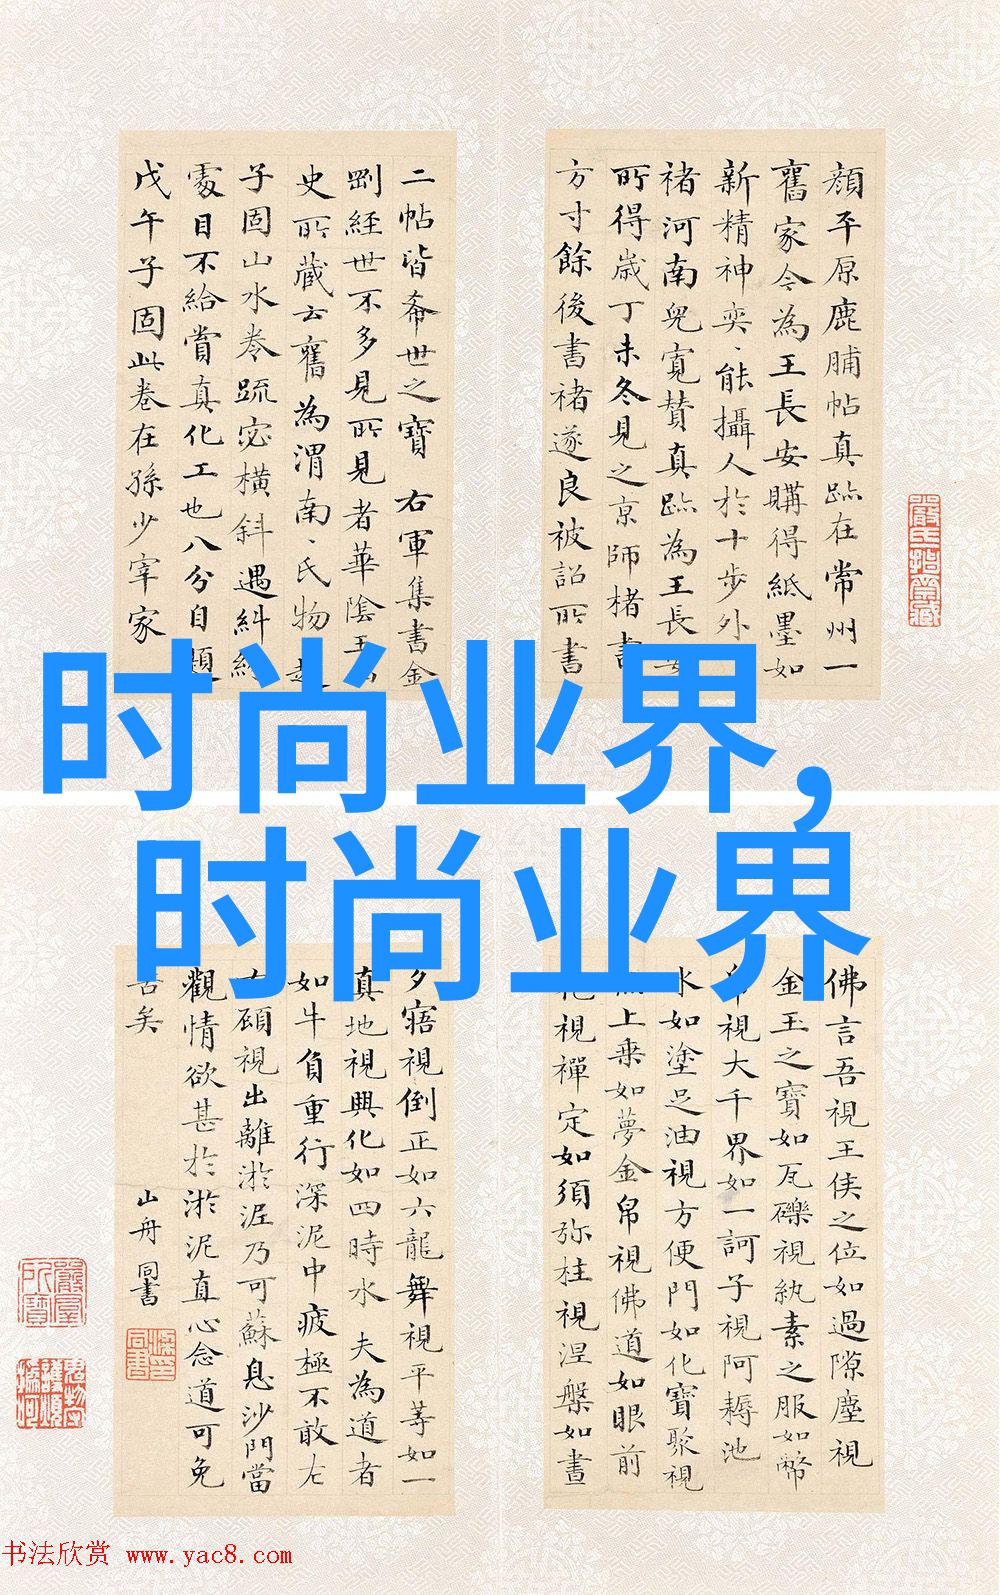 顔平原鹿脯帖真跡在常州一
舊家今為王長安購得紙墨如
新精神奕、能攝人於十步外
褚河南兒寬贊真跡為王長安
所得歲丁未冬見之京師楮書
方寸餘後書褚遂良被詔所書
二帖皆希世之寶 右軍集書金
剛經世不多見所見者華陰王
史所藏云舊為渭南、氏物
子固山水卷疏宓橫斜遇糾紛
處目不給賞真化工也八分自題
戊午子固此卷在孫少宰家
时尚业界,
时尚业界
佛言吾視王侯之位如過隙塵視
金玉之寶如瓦礫視紈素之服如幣
帛視大千界如一訶子視阿耨池
水如塗足油視方便門如化寶聚視
上乗如夢金帛視佛道如眼前
視禪定如須弥柱視涅槃如晝
夕寤視倒正如六龍舞視平等如一
真地視興化如四時水 夫為道者
如牛負重行深泥中疲極不敢左
右顧視出離淤泥乃可蘇息沙門當
觀情欲甚於淤泥直心念道可免
苦矣
山舟 同書
书法欣赏 www.yac8.com